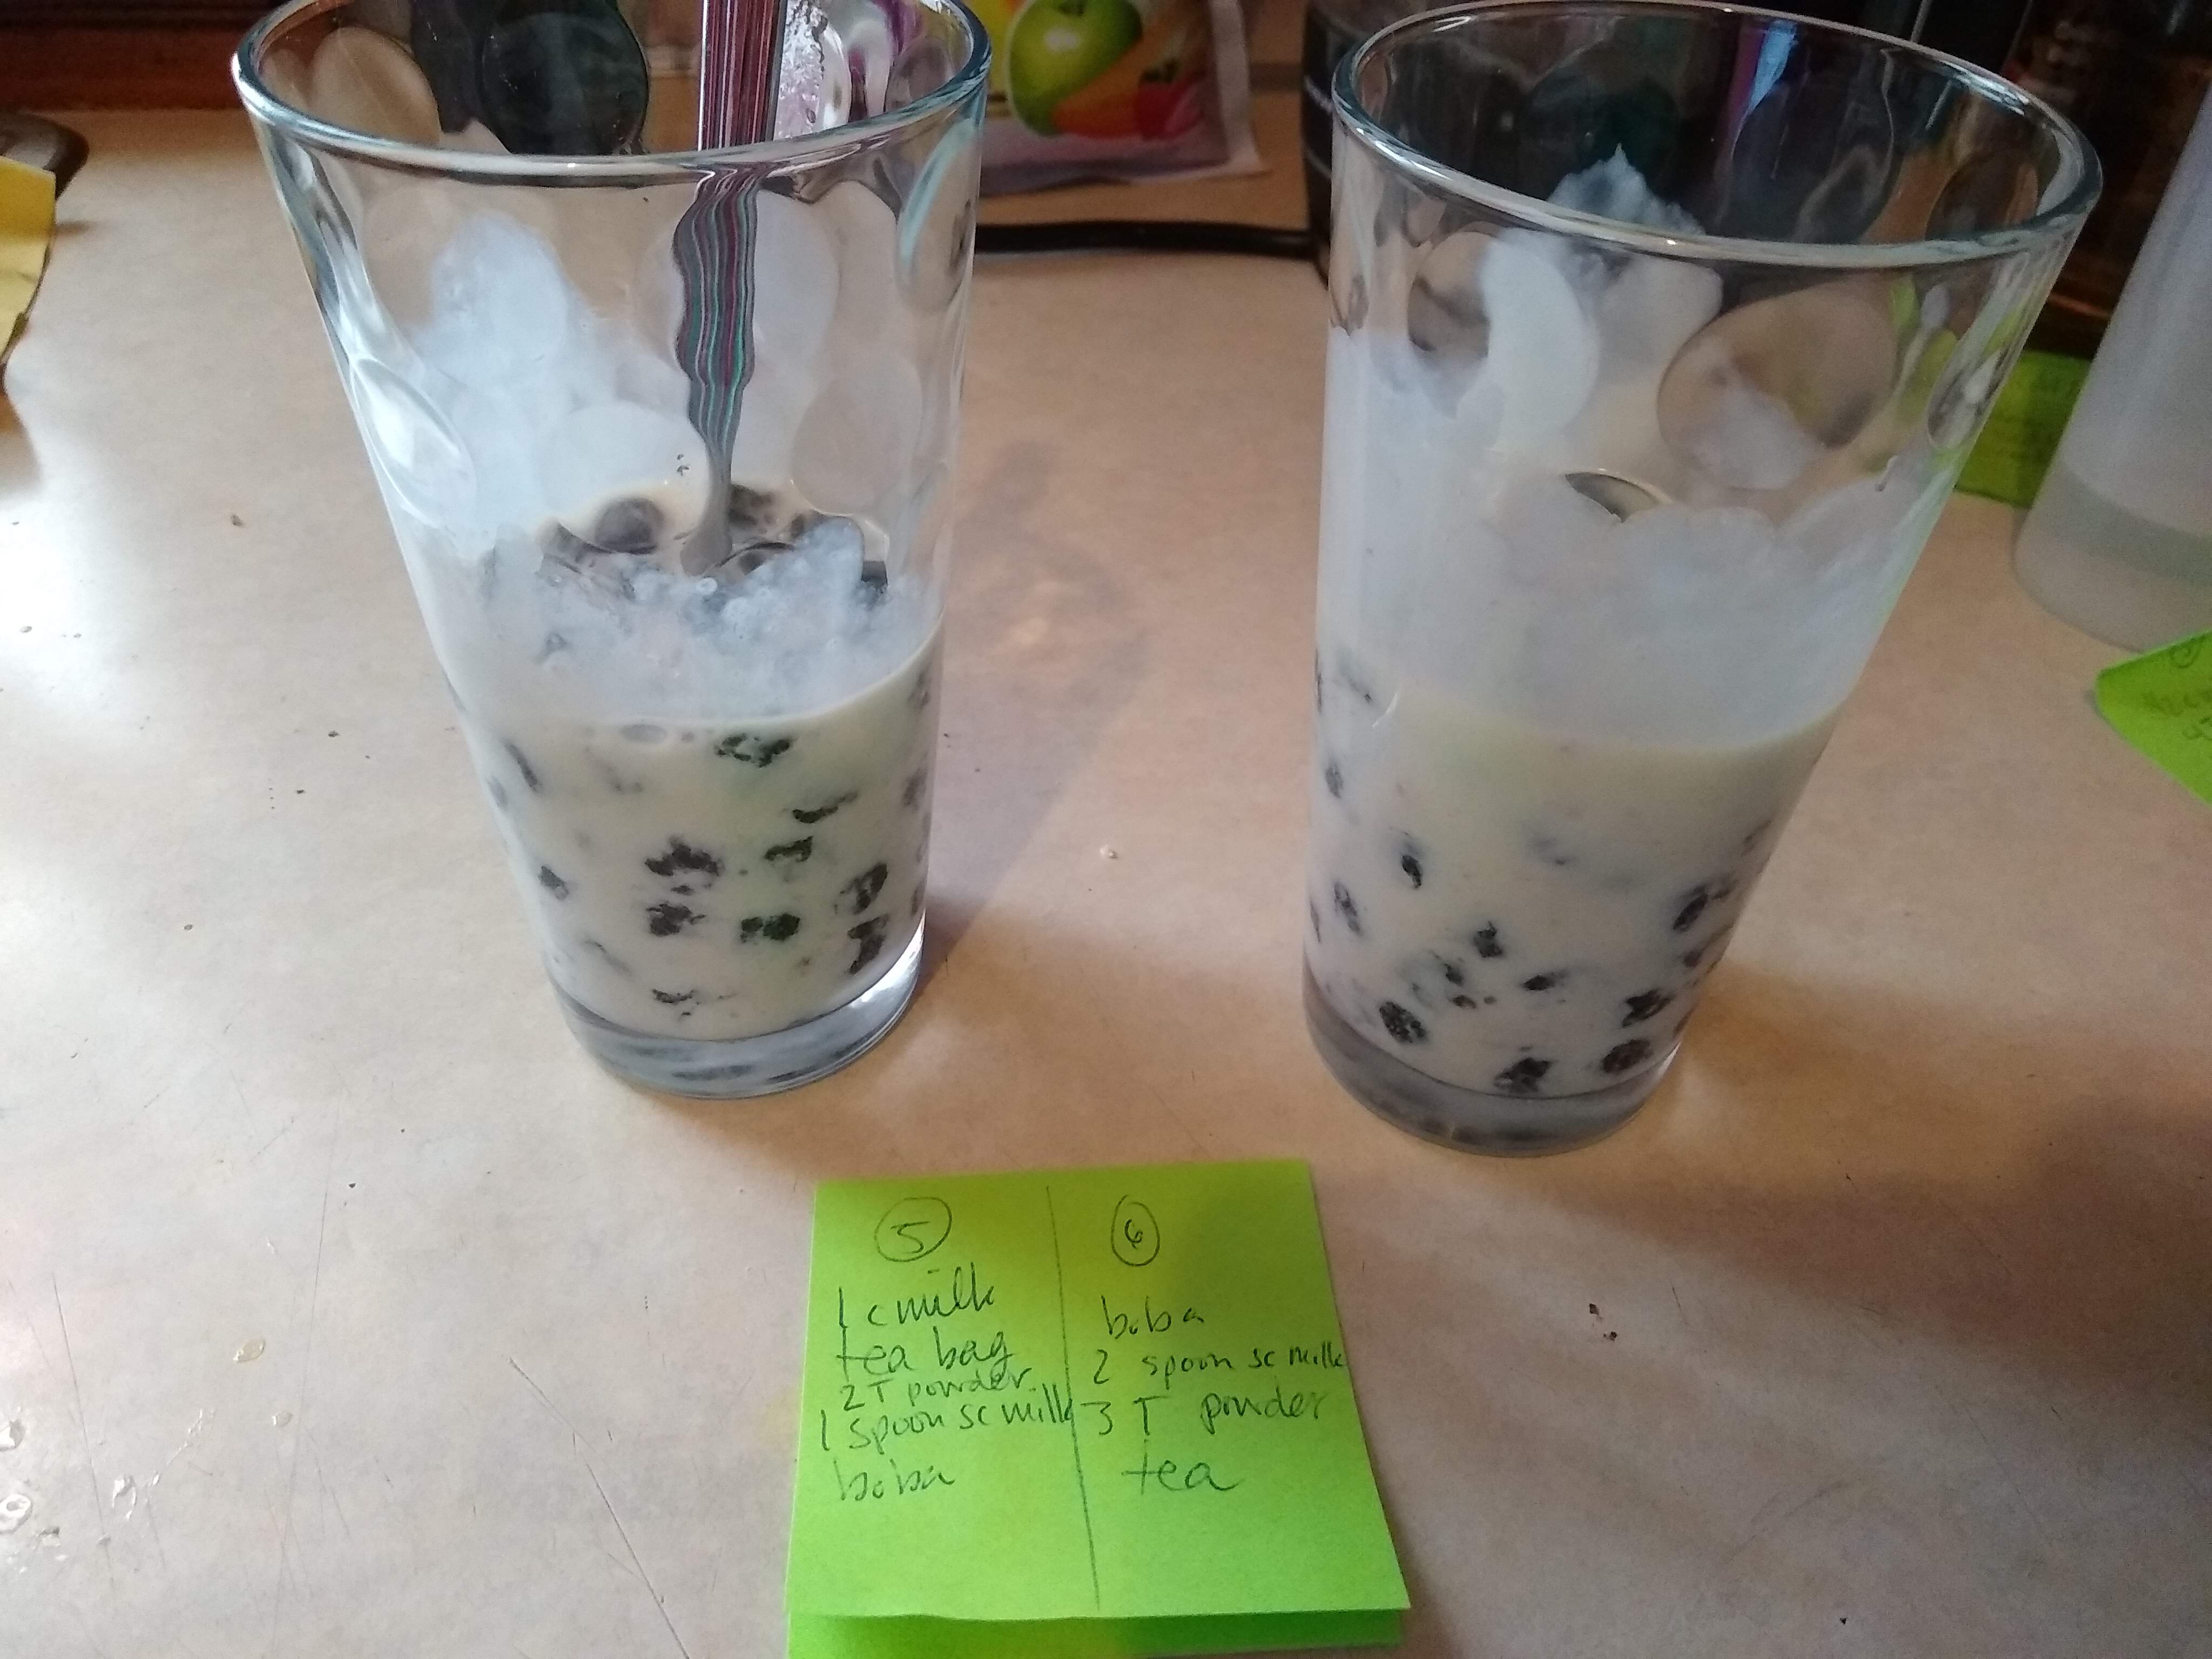 5
1 c milk
tea bag
2 T powder
1 spoon sc milk
boba
6
boba
2 spoon sc milk
3 T powder
tea